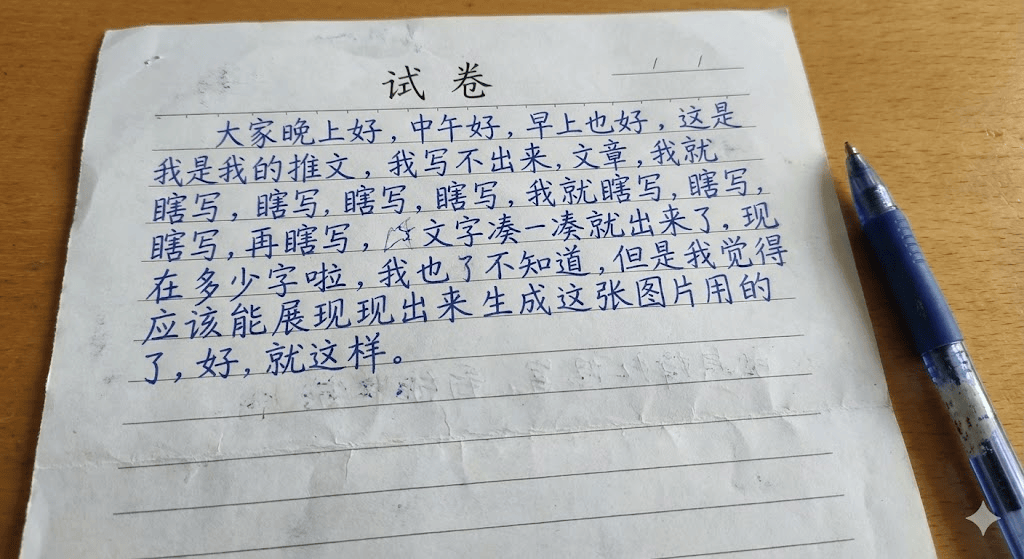 试卷
大家晚上好，中午好，早上也好，这是
我是我的推文，我写不出来，文章，我就
瞎写，瞎写，瞎写，瞎写，我就瞎写，瞎写，
瞎写，再瞎写，文字凑一凑就出来了，现
在多少字啦，我也了不知道，但是我觉得
应该能展现现出来生成这张图片用的
了，好，就这样。